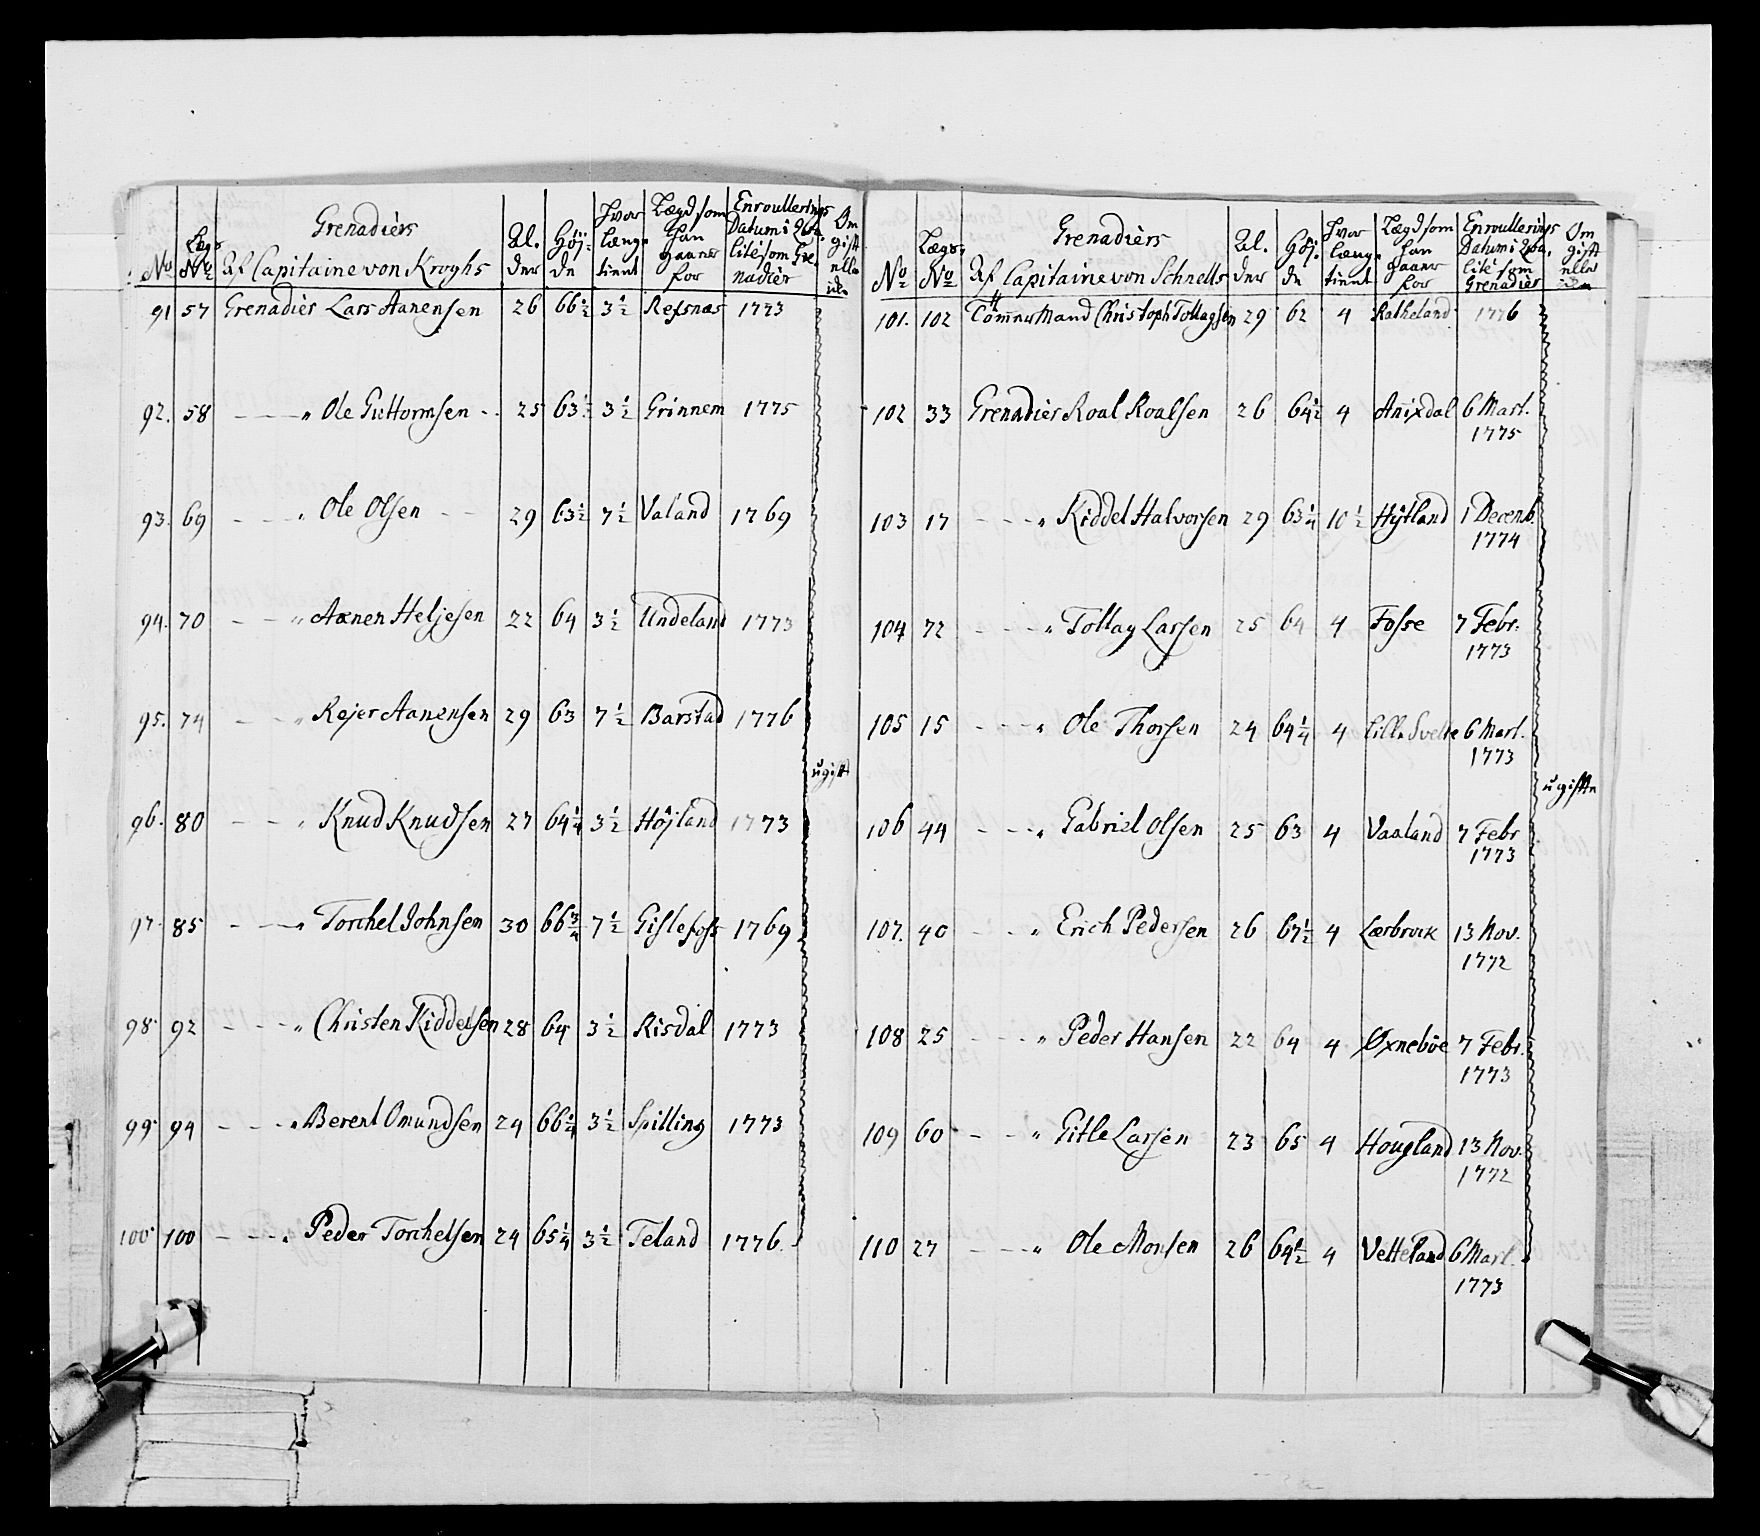 Grenadiérs
No Lægs No Af Capitaine von Kroghs Al. der Höj: de Hvor længe tient Lægd som han gaaer for Enroullerings Datum i Qva. lité som Gre. nadiér Om gift eller ei
91 57 Grenadiér Lars Aanensen 26 66½ 3½ Refsnæs 1773
92. 58 — — — " Ole Guttormsen - . 25 63½ 3½ Grinnem 1775
93. 69 — — " Ole Olsen — — 29 63½ 7½ Valand 1769
94. 70 — — " Aanen Heljesen 22 64 3½ Undeland 1773
95. 74 — — " Rejer Aanensen 29 63 7½ Barstad 1776
ugift
96. 80 — — " Knud Knudsen 27 64¼ 3½ Höjland 1773
97. 85 — — " Torchel Johnsen 30 66¾ 7½ Gislefoss 1769
98. 92 — — — " Christen Kiddelsen 28 64 3½ Risdal 1773
99. 94 — — — " Berent Omundsen 24 66¼ 3½ Spilling 1773
100. 100 — — — " Peder Torchelsen 24 65¼ 3½ Teland 1776.
Grenadiérs
No Lægs No Af Capitaine von Schnells Al. der Höj. de Hvor længe tient Lægd som han gaaer for Enroullerings Datum i Qva. lité som Grenadiér Om gift eller ei
101. 102 Tömmermand Christoph Tollagsen 29 62 4 Ratheland 1776
102 33 Grenadiér Roal Roalsen 26 64½ 4 Anixdal 6 Mart.
1775
103 17 — — — " Kiddel Halvorsen 29 63¼ 10½ Hÿtland 1 Decemb.
1774
104 72 — — — " Tollag Larsen 25 64 4 Fosse 7 Febr:
1773
105 15 — — — " Ole Thorsen 24 64¼ 4 Lille Svelte 6 Mart.
1773
ugifte
106 44 — — — " Gabriel Olsen 25 63 4 Vaaland 7 Febr
1773
107. 40 — — — " Erich Pedersen 26 67½ 4 13 Nov.
1772
108 25 — — — " Peder Hansen 22 64 4 Øxneböe 7 Febr.
1773
109 60 — — — " Gitle Larsen 23 65 4 Hougland 13 Nov.
1772
110 27 — — — " Ole Monsen 26 64½ 4 Vetteland 6 Mart.
1773